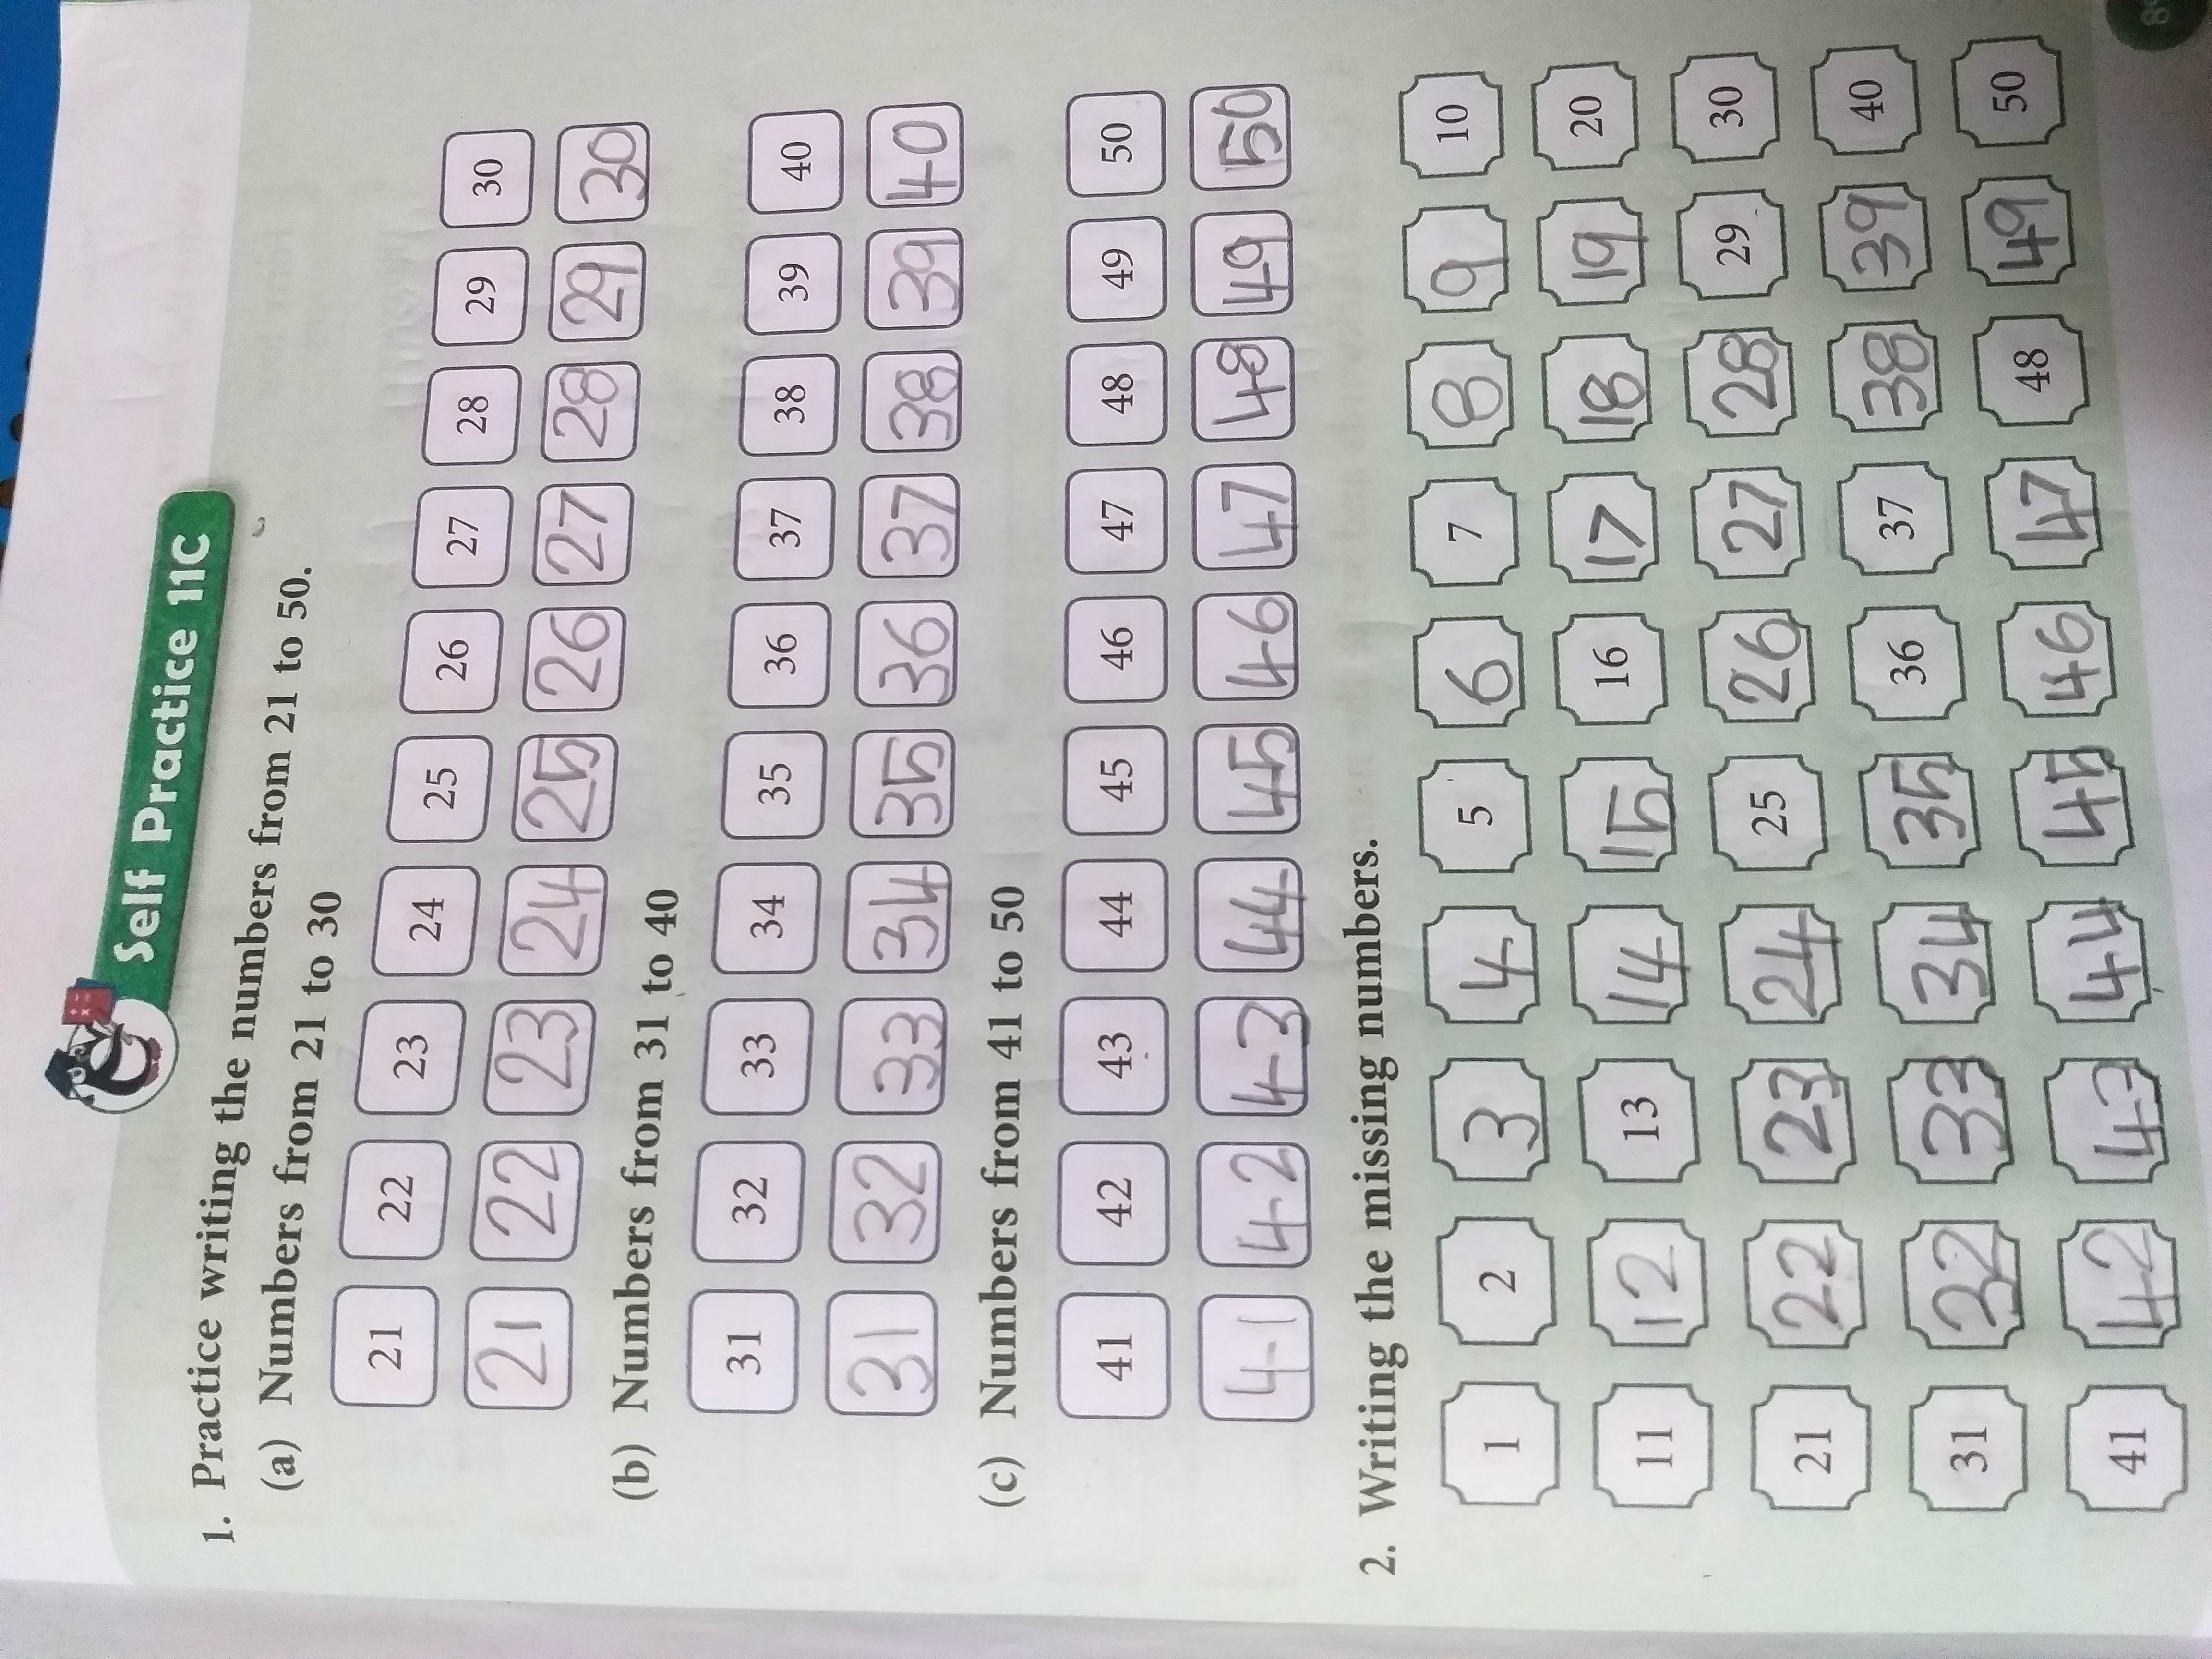 Self Practice 11C
1. Practice writing the numbers from 21 to 50.
(a) Numbers from 21 to 30
21 22 23 24 25 26 27 28 29 30
21 22 23 24 25 26 27 28 29 30
(b) Numbers from 31 to 40
31 32 33 34 35 36 37 38 39 40
31 32 33 34 35 36 37 38 39 40
(c) Numbers from 41 to 50
41 42 43 44 45 46 47 48 49 50
41 42 43 44 45 46 47 48 49 50
2. Writing the missing numbers.
1 2 3 4 5 6 7 8 9 10
11 12 13 14 15 16 17 18 19 20
21 22 23 24 25 26 27 28 29 30
31 32 33 34 35 36 37 38 39 40
41 42 43 44 45 46 47 48 49 50